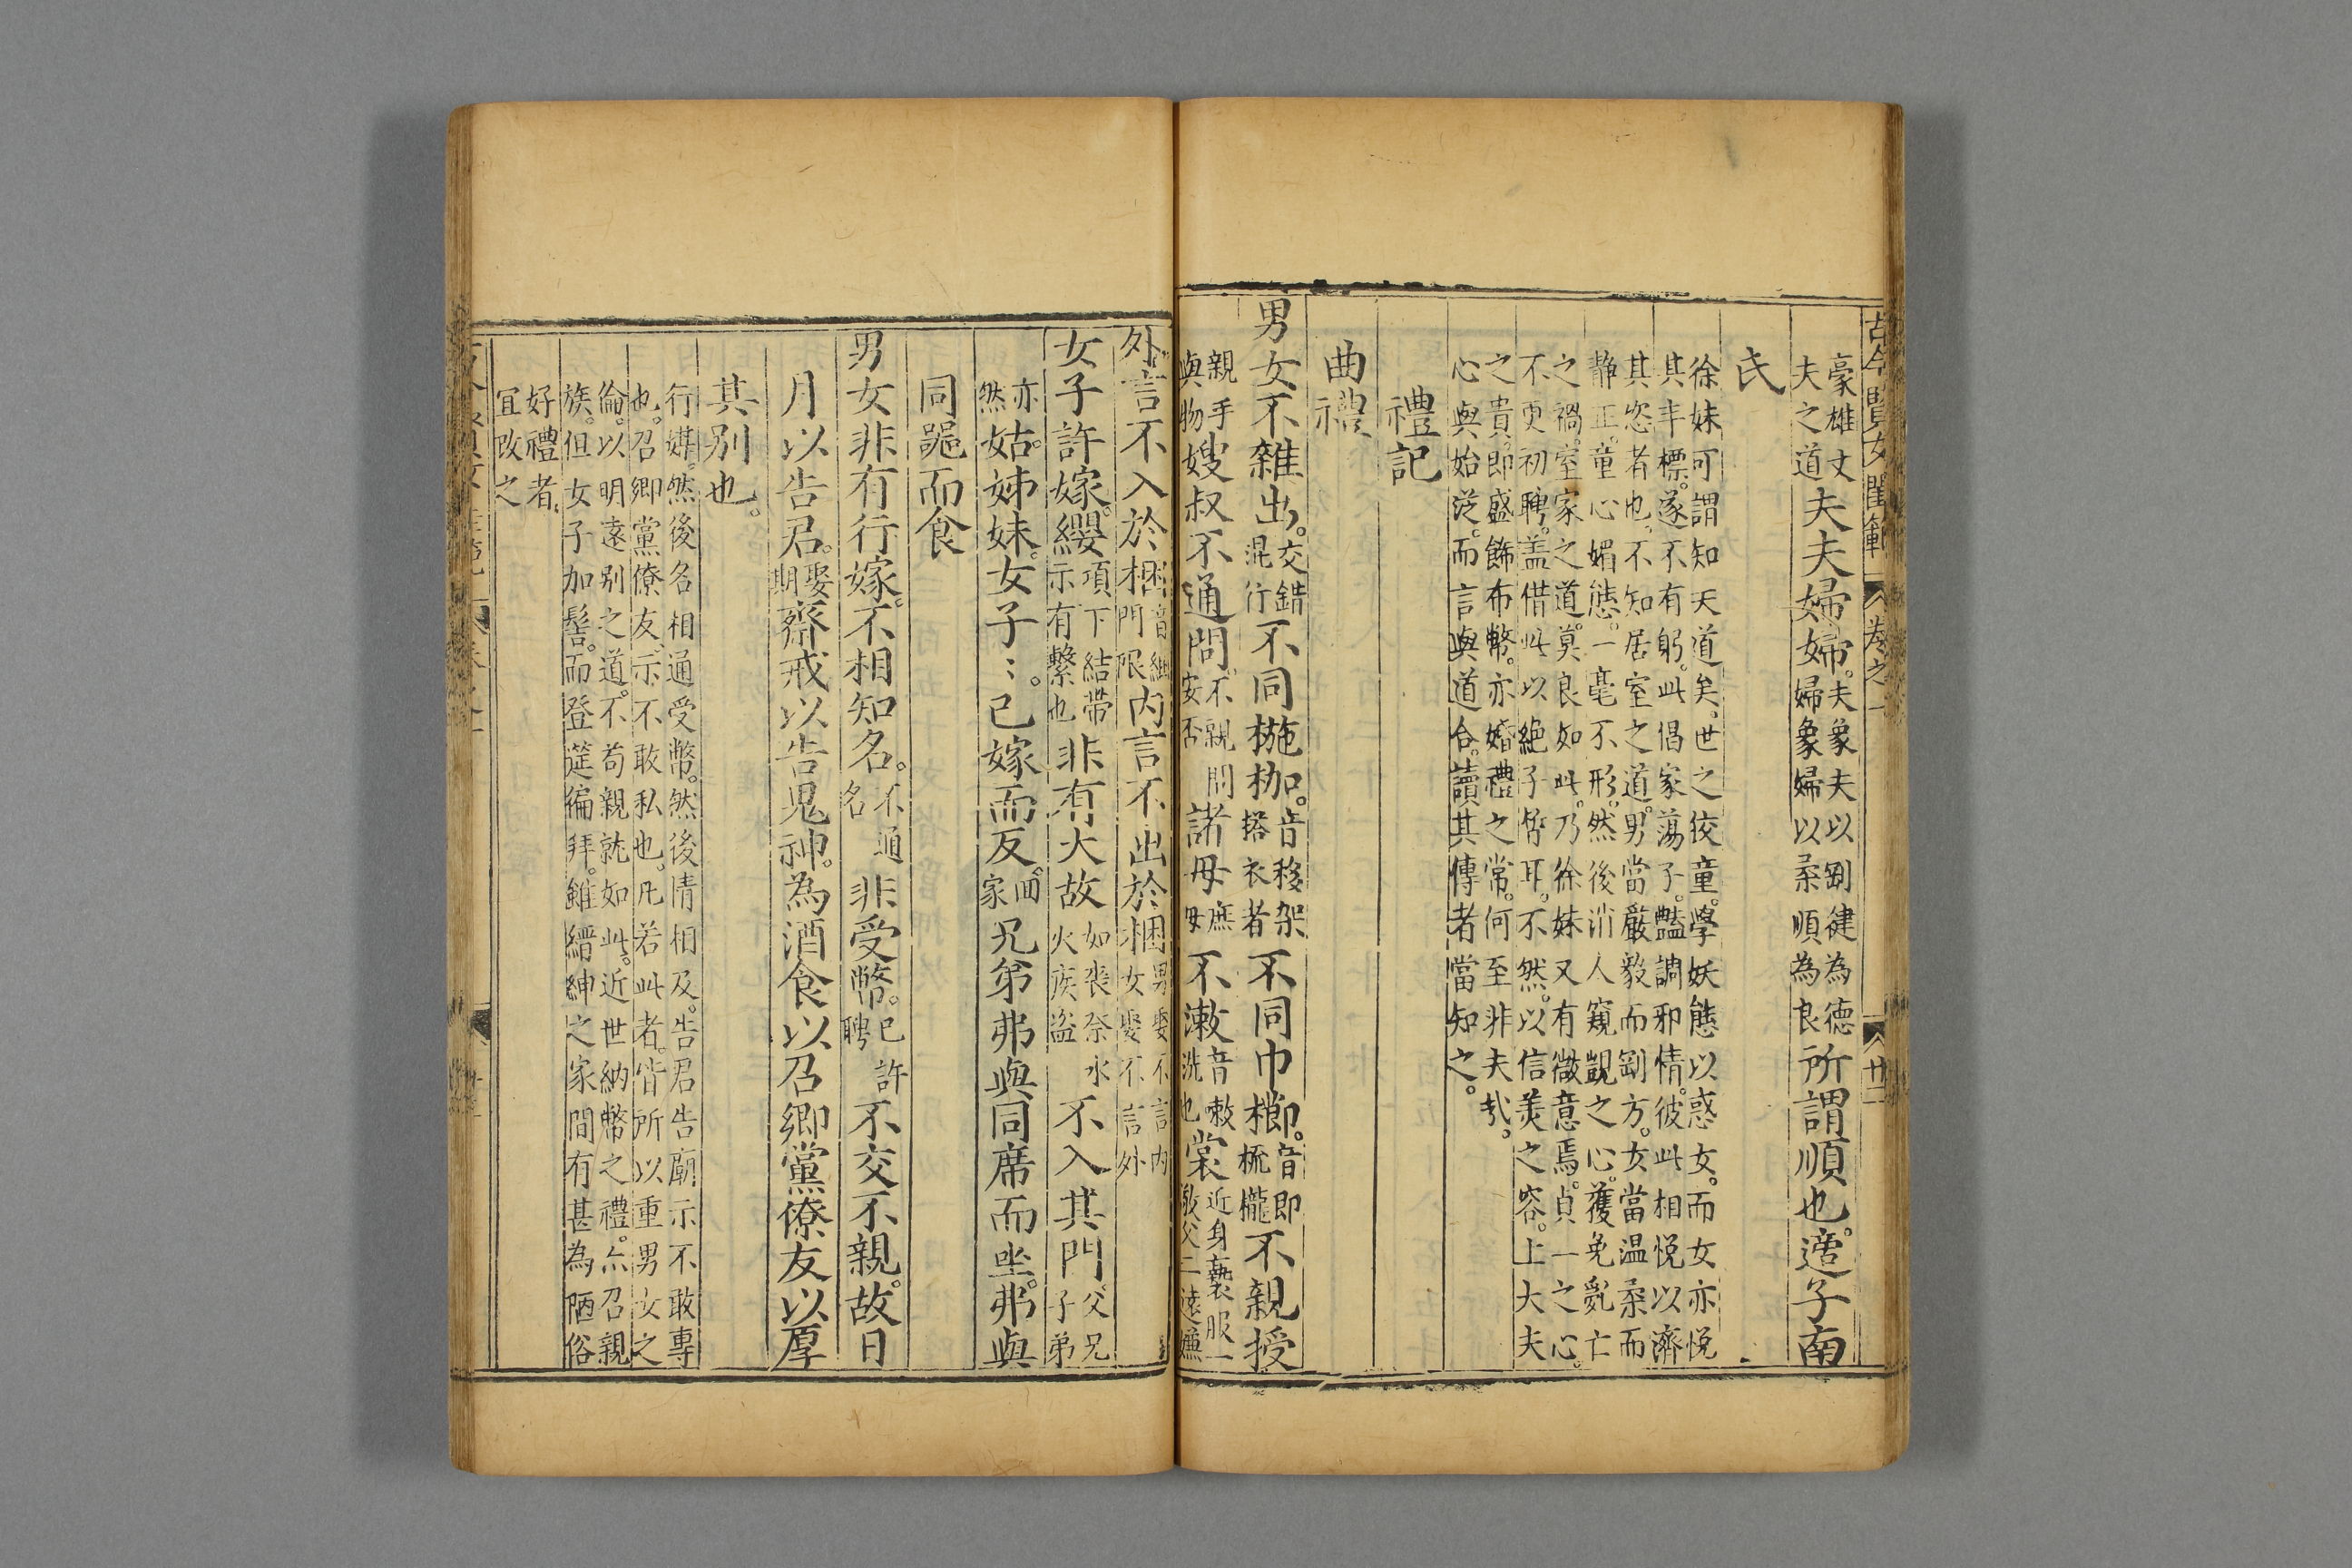 古今賢女閨範 卷之一 廿二
豪雄丈夫之道夫夫婦婦。夫象夫以剛健為德婦象婦以柔順為良所謂順也。適子南
氏
徐妹可謂知天道矣。世之狡童。學妖態以惑女。而女亦悅
其丰標。遂不有躬。此倡家蕩子。豔調邪情。彼此相悅以濟
其恣者也。不知居室之道。男當嚴毅而剛方。女當温柔而
靜正。童心媚態。一毫不形。然後消人窺覬之心。獲免亂亡
之禍。室家之道。莫良如此。乃徐妹又有微意焉。貞一之心。
不更初聘。蓋借此以絕子皙耳。不然。以信美之容。上大夫
之貴。即盛飾布幣。亦婚禮之常。何至非夫哉。
心與始從。而言與道合。讀其傳者當知之。
禮記
曲禮
男女不雜出。交錯混行不同椸枷。音移架搭衣者不同巾櫛。音即梳櫳不親授
親手與物嫂叔不通問。不親問安否諸母庶母不漱音嗽洗也裳近身褻服一敬父二遠嫌
外言不入於梱音綑門限內言不出於梱男婁不言內女婁不言外
女子許嫁。纓項下結帶示有繫也非有大故如喪祭水火疾盜不入其門。父兄子弟
亦然姑。姊妹。女子〻。已嫁而反。回家兄弟弗與同席而坐。弗與
同器而食
男女非有行媒。不相知名。不通名非受幣。已許聘不交不親。故日
月以告君。娶期齋戒以告鬼神。為酒食以召鄉黨僚友以厚
其別也。
行媒。然後名相通受幣。然後情相及。告君告廟示不敢專
也。召鄉黨僚友示不敢私也。凡若此者。皆所以重男女之
倫。以明遠別之道。不苟親就如此。近世納幣之禮。亦召親
族。但女子加髻。而登筵徧拜。雖縉紳之家間有甚為陋俗
好禮者。
宜改之